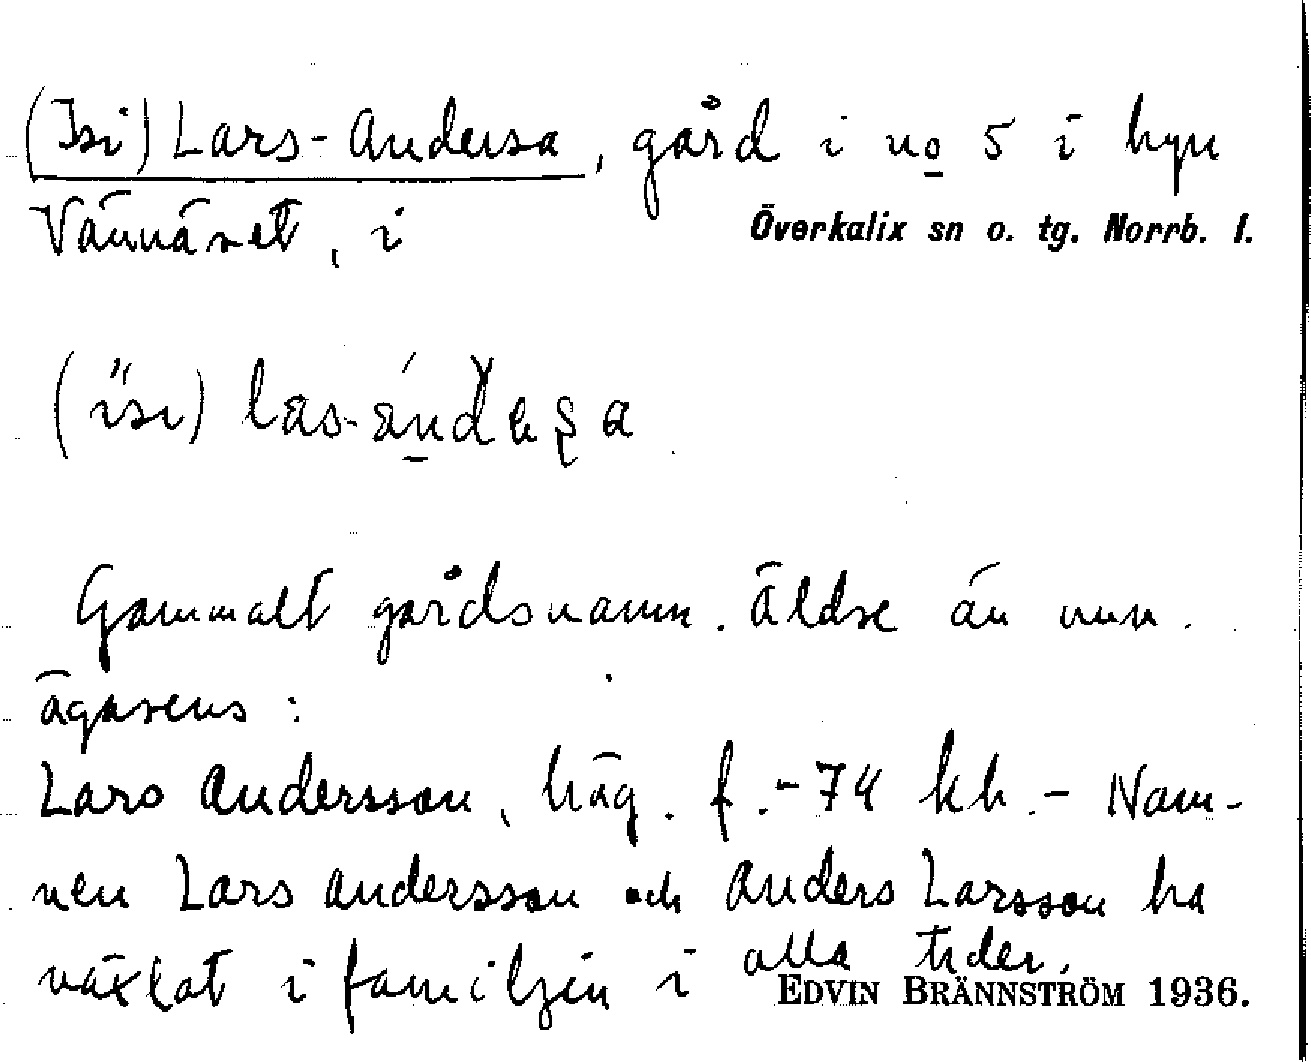 (Isi) Lars-Andersa, gård i no 5 i byn
Vännäset, i Överkalix sn o. tg. Norrb. l.
Gammalt gårdsnamn. Äldre än nuv.
ägarens:
Lars Andersson, häg. f. -74 kh. - Nam-
nen Lars Andersson och Anders Larsson ha
växlat i familjen i alla tider.
EDVIN BRÄNNSTRÖM 1936.